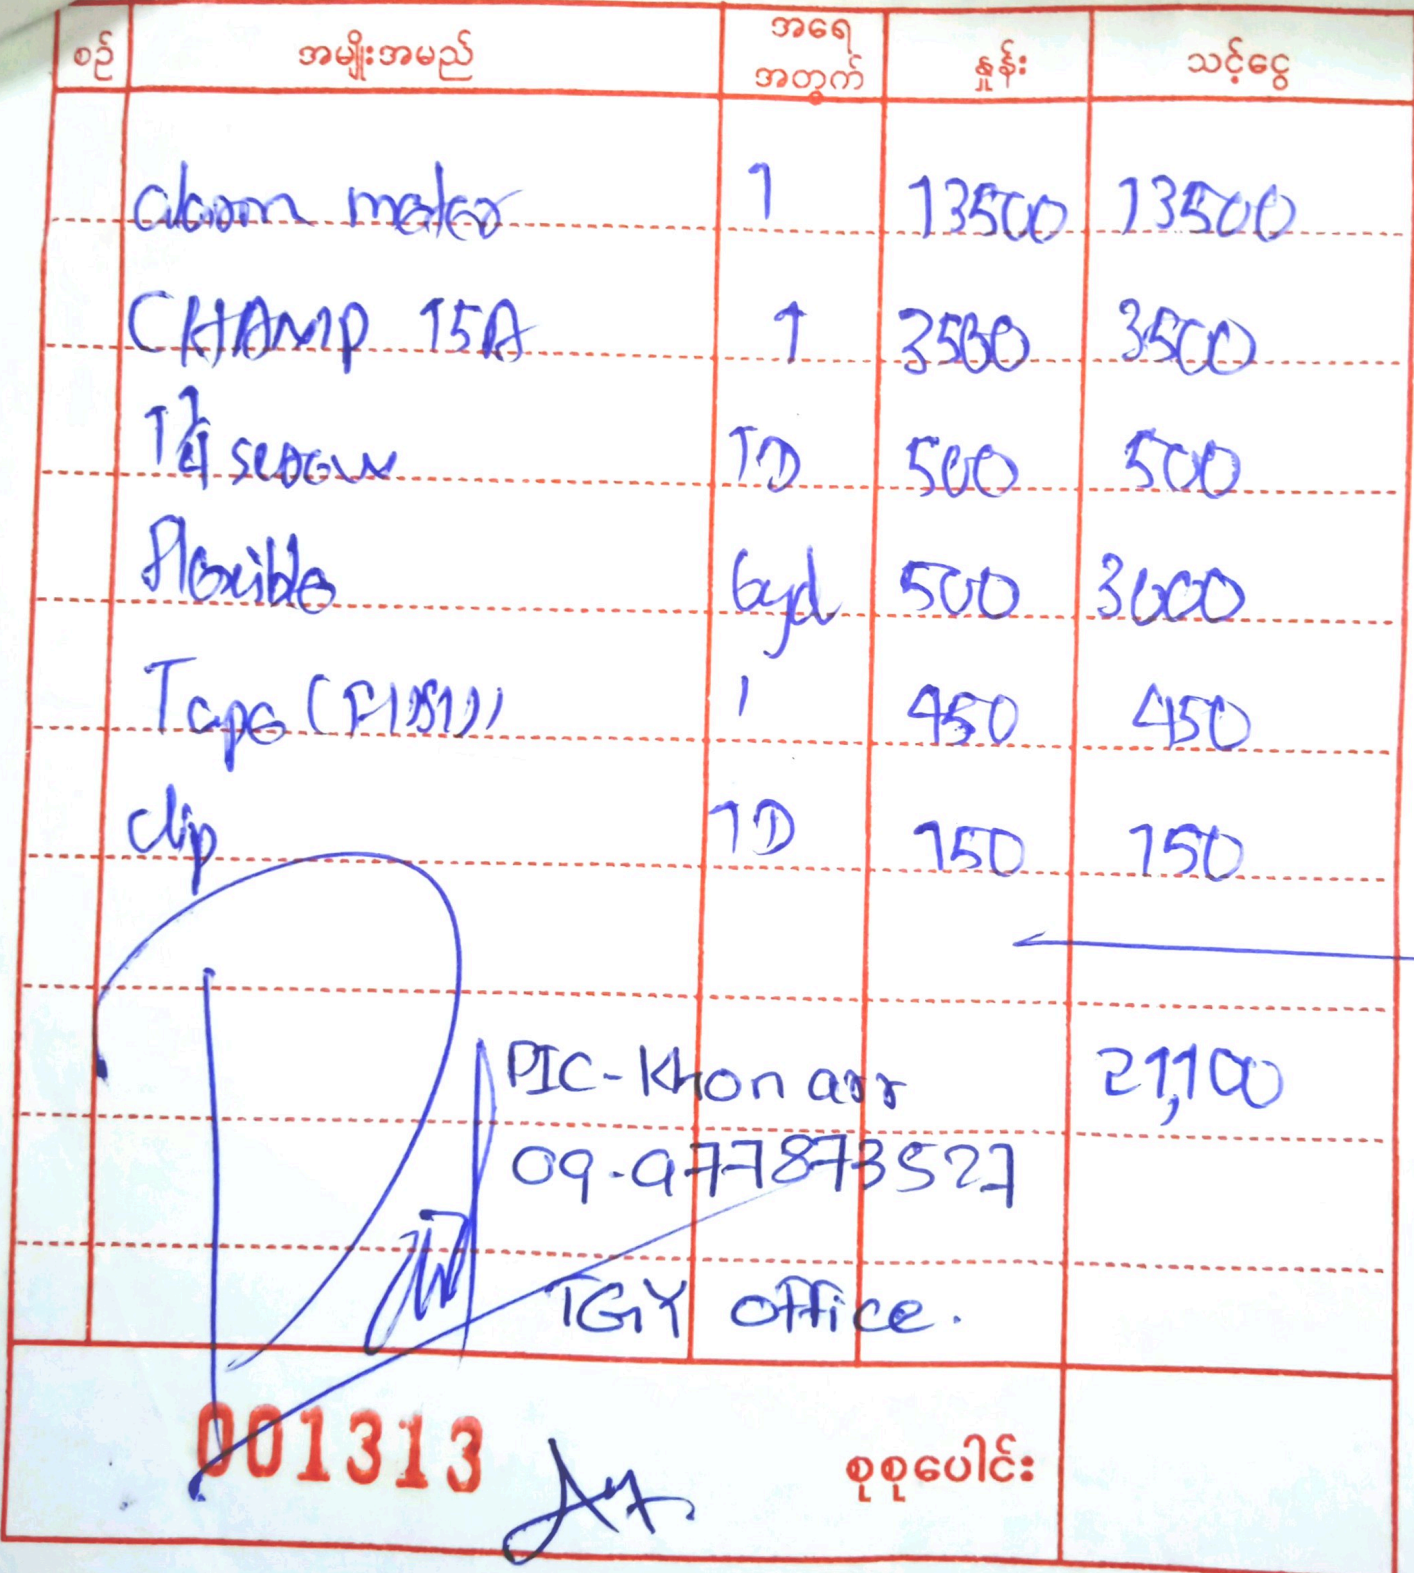 စဉ် အမျိုးအမည် အရေအတွက် နှုန်း သင့်ငွေ
alarm meter 1 13500 13500
CHAMP 15A 1 3500 3500
1 1/4 screw 1D 500 500
Flexible 6yd 500 3000
Tape 1 450 450
clip 1D 150 150
21,100
PIC-Khon arr
09-977873527
TGY office.
001313
စုစုပေါင်း